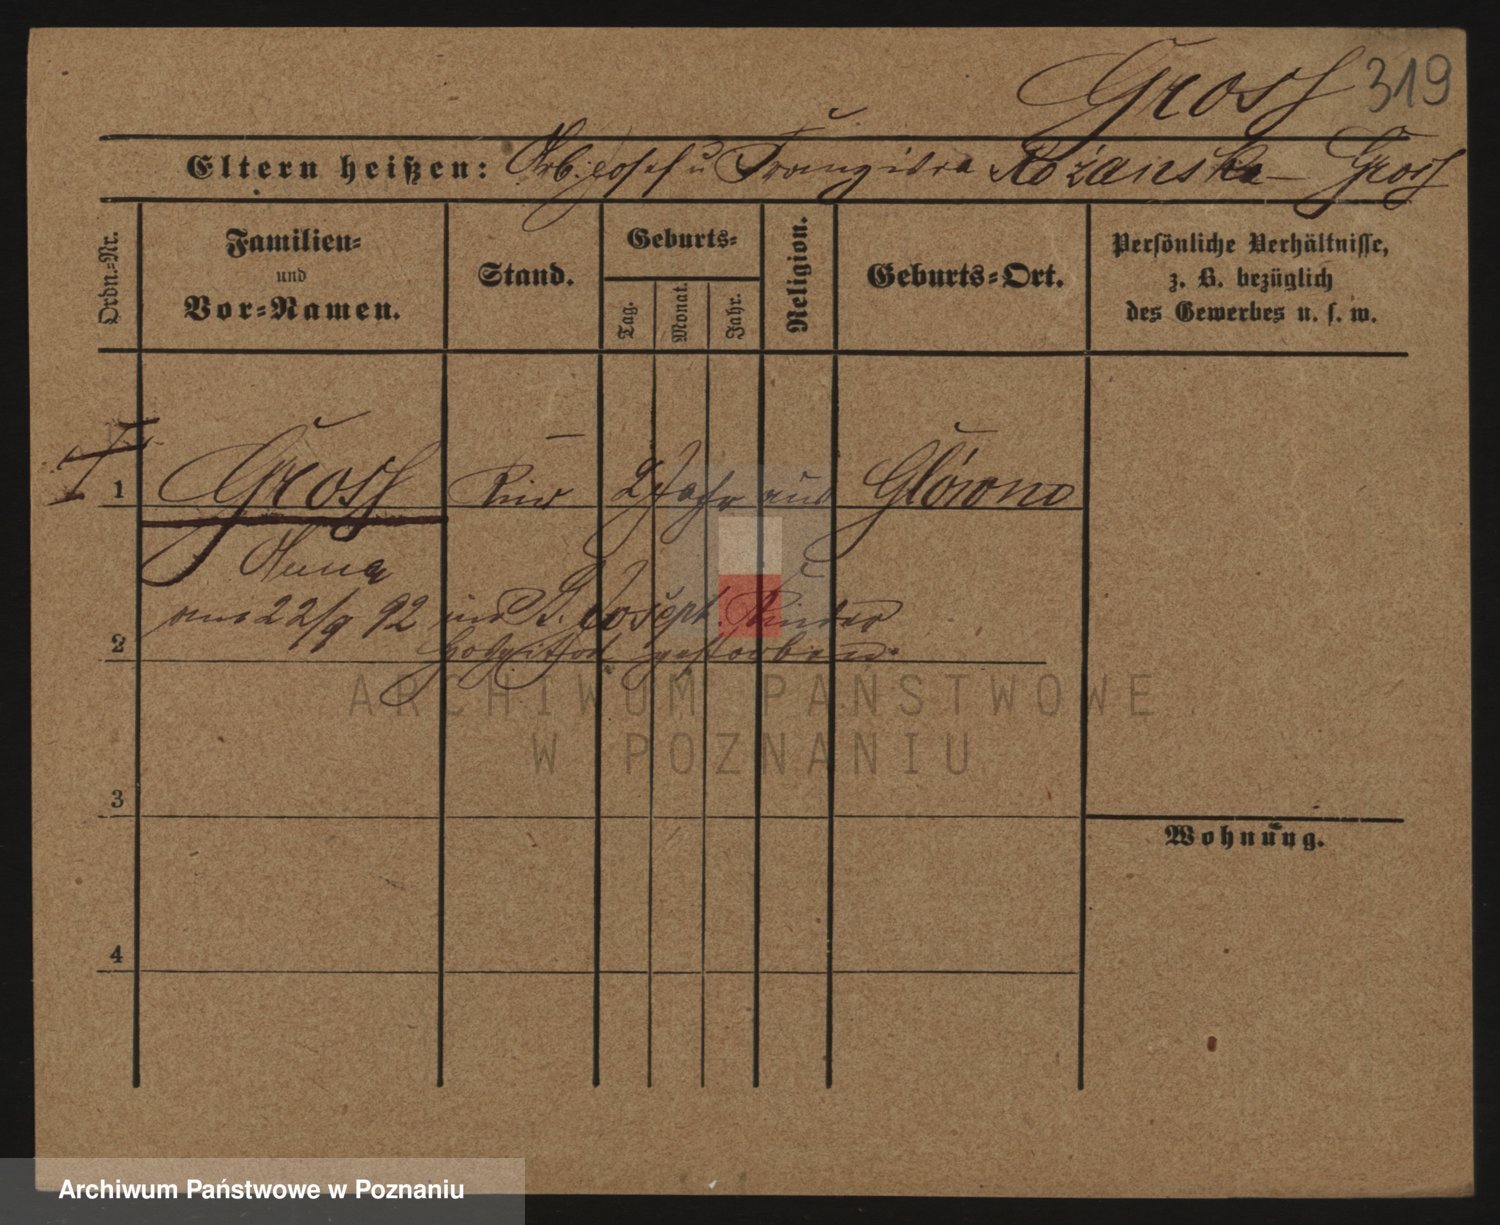 Grosz 319
Eltern heißen: Arb. Josef u Franziska Rożańska - Grosz
Ordn.-Nr.
Familien-
und
Vor-Namen.
Stand.
Geburts-
Tag.
Monat.
Jahr.
Religion.
Geburts-Ort.
Persönliche Verhältnisse,
z. B. bezüglich
des Gewerbes u. s. w.
1 Grosz Kind 2 Jahr aus Główno
Anna
am 22/9 92 im St. Joseph. Kinder
2
Hospital gestorben.
ARCHIWUM PAŃSTWOWE
W POZNANIU
3
Wohnung.
4
Archiwum Państwowe w Poznaniu